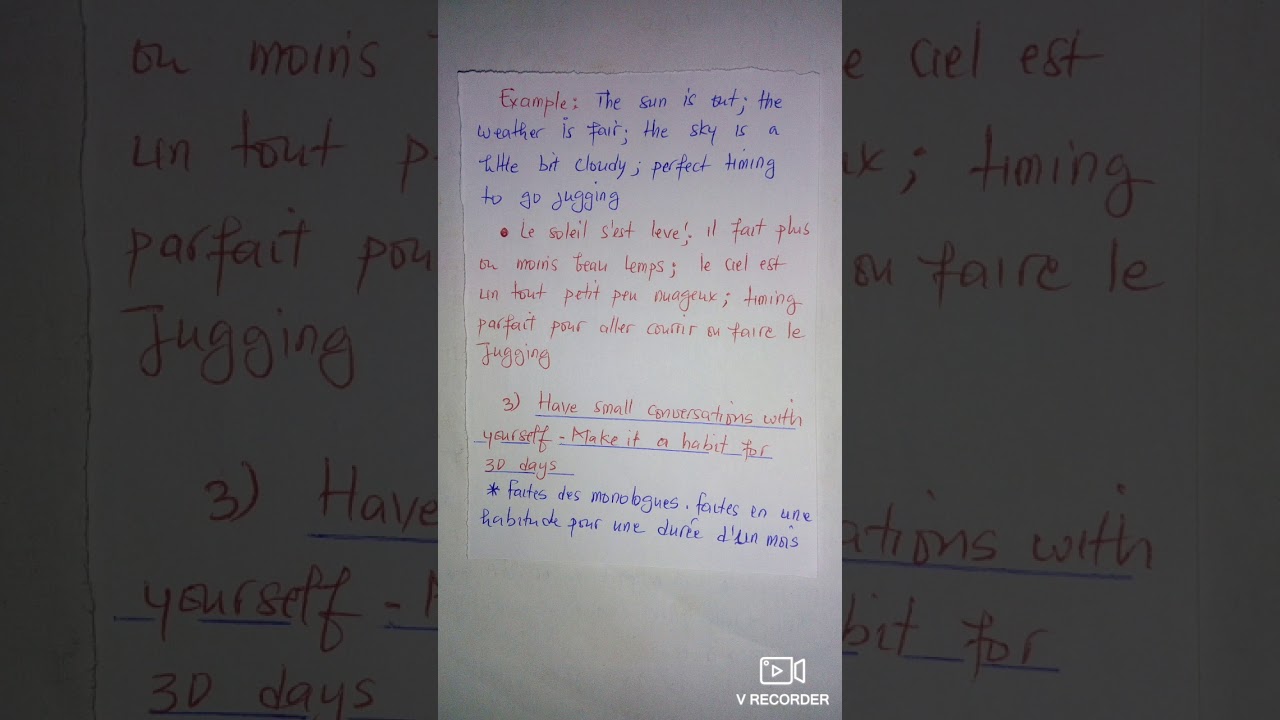 Example: The sun is out; the
weather is fair; the sky is a
little bit cloudy; perfect timing
to go jugging
• Le soleil s'est levé; il fait plus
ou moins beau temps; le ciel est
un tout petit peu nuageux; timing
parfait pour aller courrir ou faire le
Jugging
3) Have small conversations with
yourself - Make it a habit for
30 days
* Faites des monologues. faites en une
habitude pour une durée d'un mois
V RECORDER